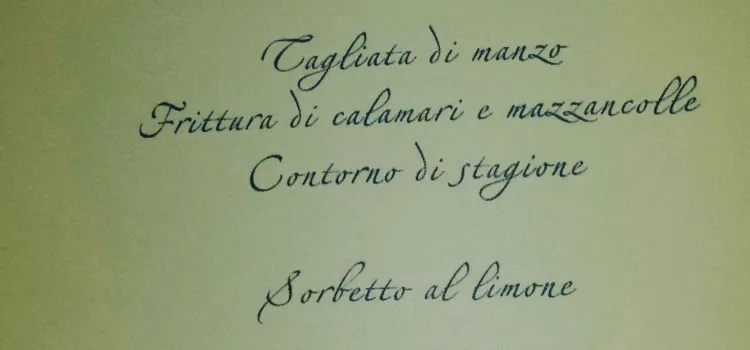 Tagliata di manzo
Frittura di calamari e mazzancolle
Contorno di stagione
Sorbetto al limone